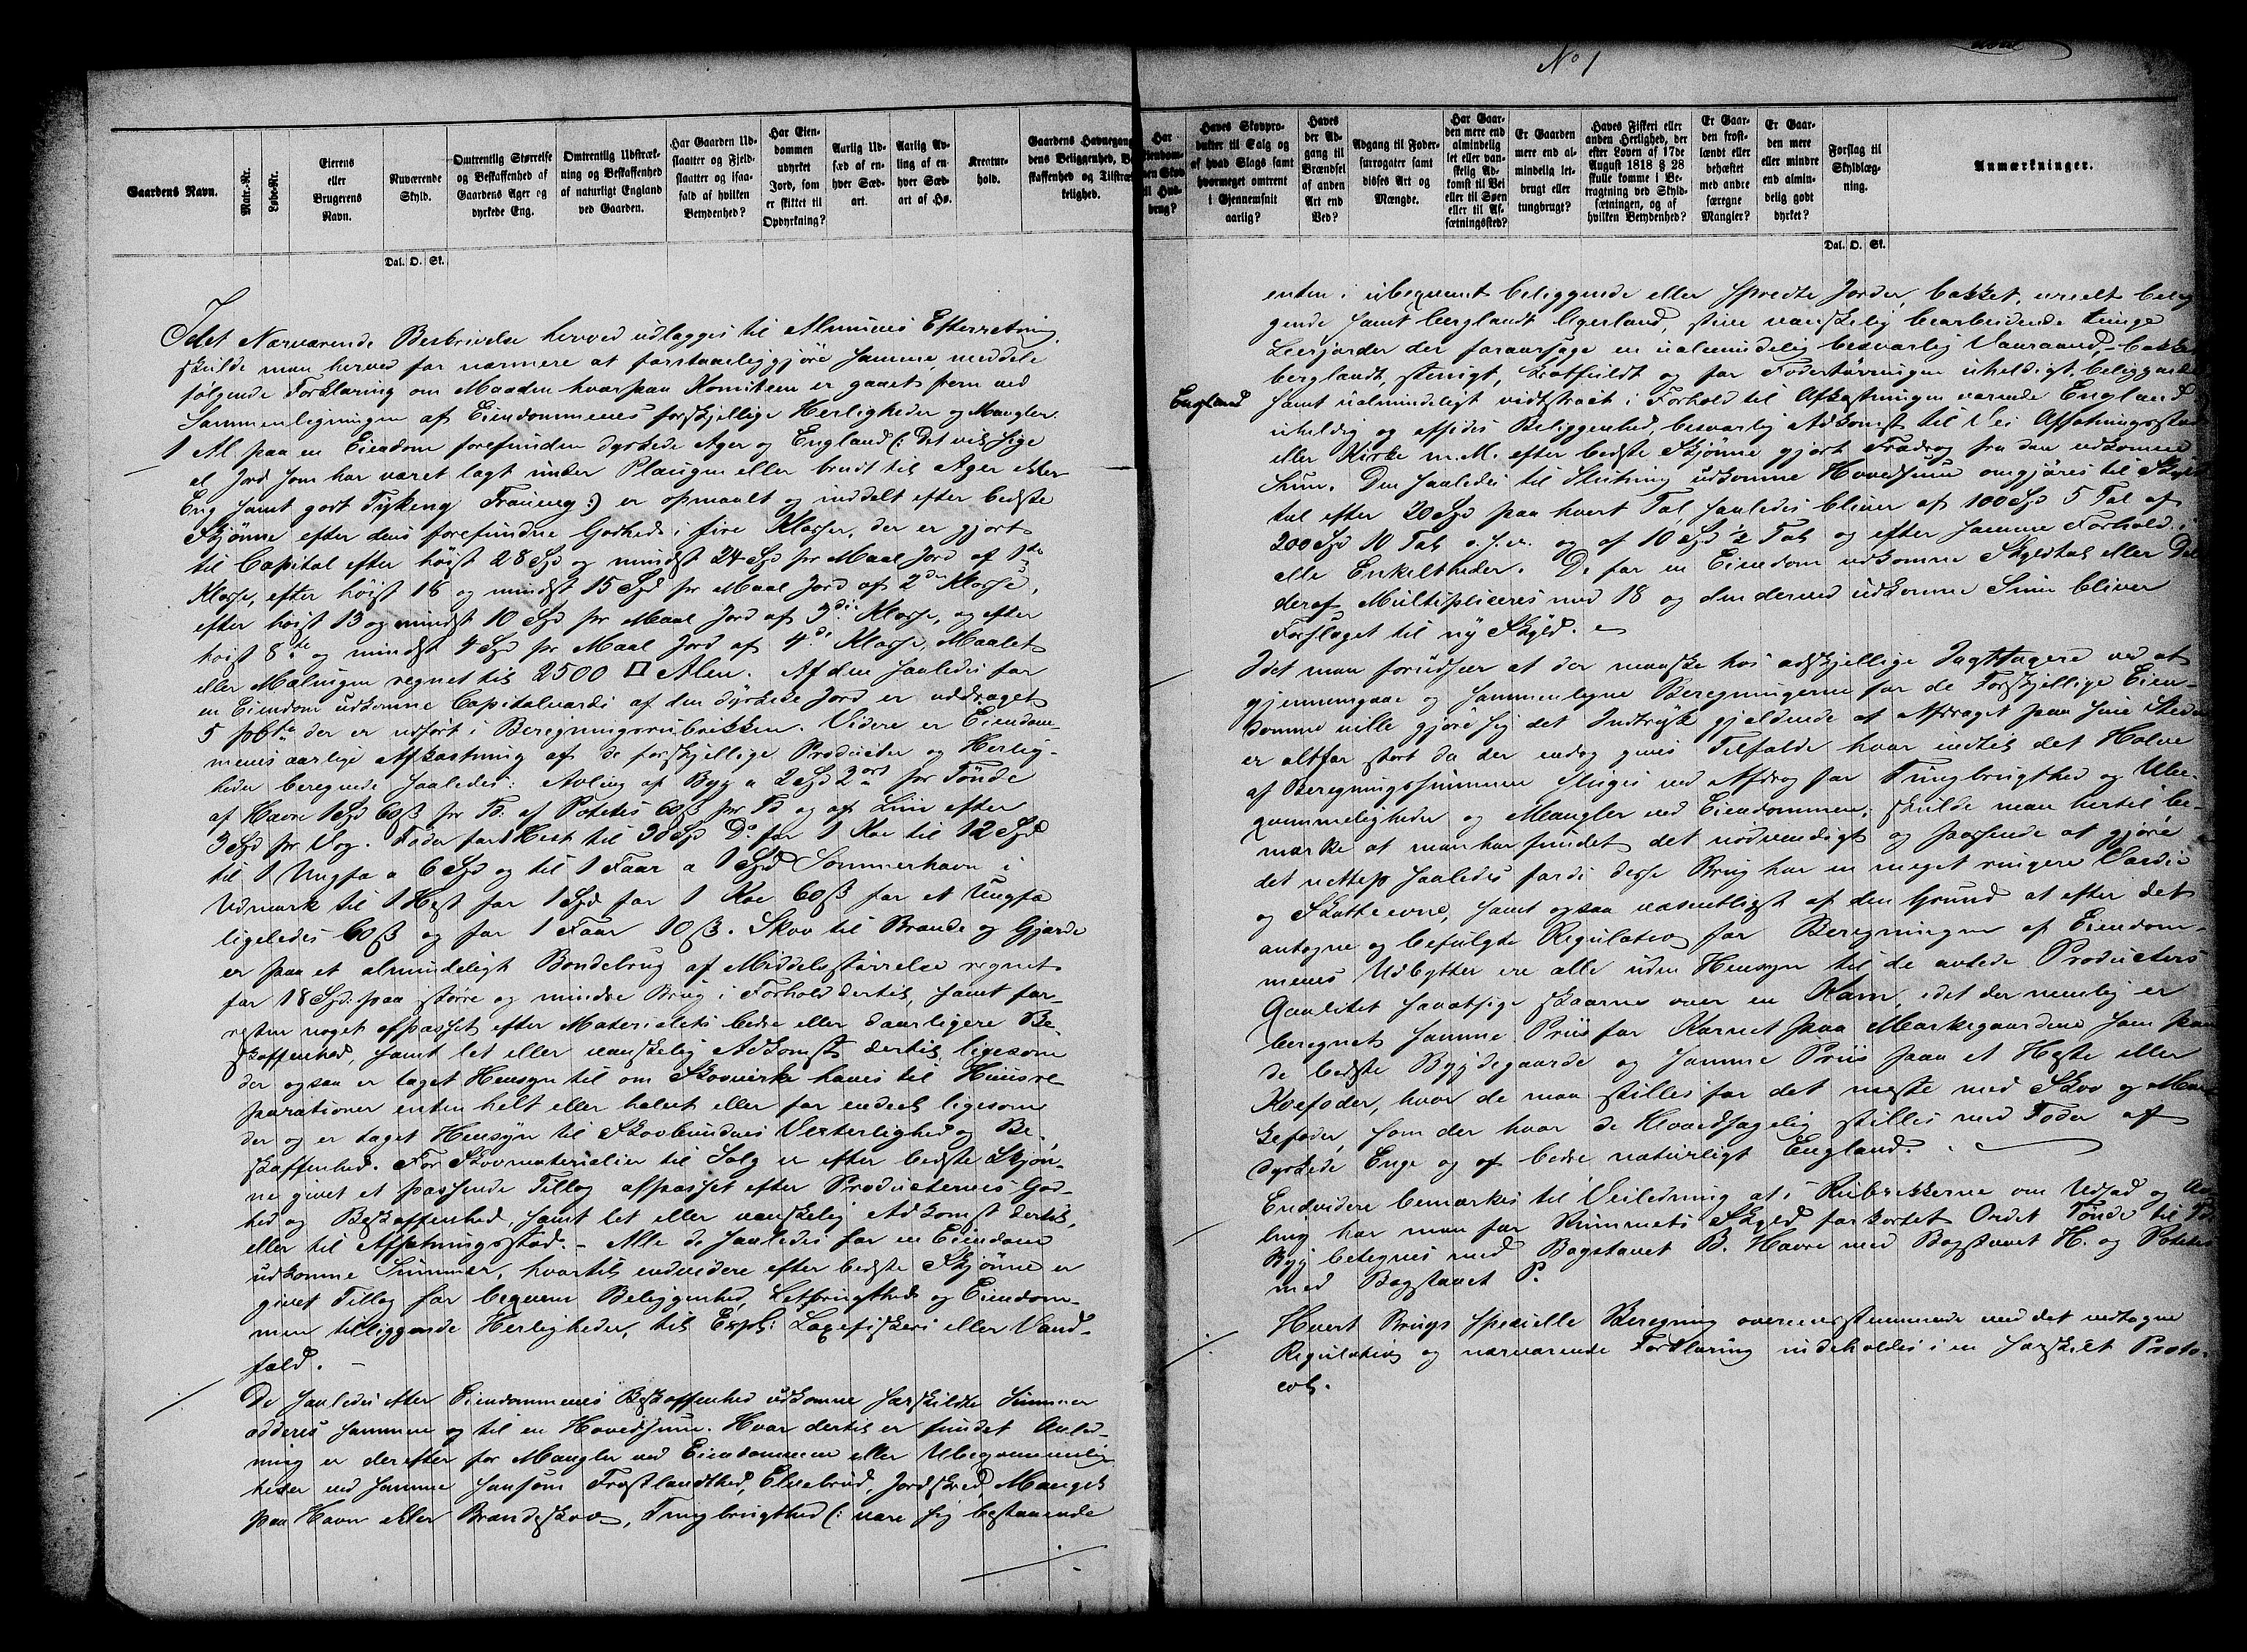 No 1
Gaardens Navn.
Matr.-Nr.
Løbe-Nr.
Eierens eller Brugerens Navn.
Nuværende Skyld.
Dal. O. Sk.
Omtrentlig Størrelse og Beskaffenhed af Gaardens Ager og dyrkede Eng.
Omtrentlig Udstrækning og Beskaffenhed af naturligt England ved Gaarden.
Har Gaarden Udslaatter og Fjeldslaatter og isaafald af hvilken Betydenhed?
Har Eiendommen udyrket Jord, som er skikket til Opdyrkning?
Aarlig Udsæd af enhver Sædart.
Aarlig Avling af enhver Sædart af Hø.
Kreaturhold.
Gaardens Havnegang
dens Beliggenhed, Be
skaffenhed og Tilstræk
kelighed.
Har
Eiendom-
men Skov
til Hus-
brug?
Haves Skovprodukter til Salg og af hvad Slags samt hvormeget omtrent i Gjennemsnit aarlig?
Haves der Adgang til Brændsel af anden Art end Ved?
Adgang til Fodersurrogater samt disses Art og Mængde.
Har Gaarden mere end almindelig let eller vanskelig Adkomst til Vei eller til Søen eller til Afsætningssted?
Er Gaarden mere end almindelig letbrugt eller tungbrugt?
Haves Fiskeri eller anden Herlighed, der efter Loven af 17de August 1818 § 28 skulle komme i Betragtning ved Skyldsætningen, og af hvilken Betydenhed?
Er Gaarden frostlændt eller behæftet med andre særegne Mangler?
Er Gaarden mere eller mindre end almindelig godt dyrket?
Forslag til Skyldlægning.
Dal. O. Sk.
Anmærkninger.
Idet Nærværende Beskrivelse herved udlægges til Almuens Efterretning
skulde man herved for nærmere at forstaaeliggjøre samme, meddele
følgende Forklaring om Maaden hvorpaa Komiteen er gaaet frem ved
Sammenligningen af Eiendommenes forskjellige Herligheder og Mangler.
1 Al paa en Eiendom forefunden dyrkede Ager og England (: Det vil sige
al Jord som har været lagt under Plougen eller brudt til Ager eller
Eng samt godt Tykeng :) er opmaalt og inddelt efter bedste
Skjønne efter dens forefundne Godhed i fire Klasser, der er gjort
til Capital efter høist 28 Spd og mindst 24 Spd pr Maal Jord af 1ste
Klasse, efter høist 18 og mindst 15 Spd pr Maal Jord af 2den Klasse,
efter høist 13 og mindst 10 Spd pr Maal Jord af 3die Klasse, og efter
høist 8 og mindst 4 Spd pr Maal Jord af 4de Klasse, Maalet
eller Mælingen regnet til 2500 □ Alen. Af den saaledes for
en Eiendom udkomne Capitalværdi af den dyrkede Jord er uddraget
5 pCto der er udført i Beregningsrubrikken. Videre er Eiendom-
menes aarlige Afkastning af de forskjellige Producter og Herlig-
heder beregnede saaledes: Avling af Byg a 2 Spd 2 ort pr Tønde
af Havre 1 Spd 60 ß pr Td. af Potetes 60 ß pr Td og af Liin efter
3 Spd pr Vog. Foder for 1 Hest til 30 Spd Do for 1 Koe til 12 Spd
til 1 Ungfæ a 6 Spd og til 1 Faar a 1 Spd Sommerhavn i
Udmark til 1 Hest for 1 Spd for 1 Koe 60 ß for et Ungfæ
ligeledes 60 ß og for 1 Faar 10 ß. Skov til Brænde og Gjærde
er paa et almindeligt Bondebrug af Middelsstørrelse regnet
for 18 Spd. paa større og mindre Brug i Forhold dertil, samt for-
resten noget afpasset efter Materialets bedre eller daarligere Be-
skaffenhed, samt let eller vanskelig Adkomst dertil, ligesom
der ogsaa er taget Hensyn til om Skovvirke haves til Huusre-
parationer enten helt eller halvt eller for endeel ligesom
der og er taget Hensyn til Skovbundens Vexterlighed og Be-
skaffenhed. For Skovmaterialier til Salg er efter bedste Skjøn-
ne givet et passende Tillæg afpasset efter Producternes God-
hed og Beskaffenhed, samt let eller vanskelig Adkomst dertil,
eller til Afsætningssted. - Alle de saaledes for en Eiendom
udkomne Summer, hvortil endvidere efter bedste Skjønne er
givet Tillæg for beqvem Beliggenhed, Letbrugthed og Eiendom-
men tilliggende Herligheder, til Expl: Laxefiskeri eller Vand-
fald. -
De saaledes efter Eiendommenes Beskaffenhed udkomne særskildte Summer
adderes sammen og til en Hovedsum. Hvor dertil er fundet Anled-
ning er derefter for Mangler ved Eiendommene eller Ubeqvemmelig-
heder ved samme saasom Frostlændthed, Elvebrud, Jordskred, Mangel
paa Havn eller Brændeskov, Tungbrugthed (: være sig bestaaende
enten i ubeqvemt beliggende eller spredte Jorder, bakket, ureelt belig
gende samt berglændt Agerland, stive vanskelig bearbeidende tunge
Leerjorder der foraarsage en ualmindelig besværlig Vaaraand, bakket
berglændt, stenigt, og for Fodertørringen uheldigt beliggende
England samt ualmindeligt vidtstrakt i Forhold til Afkastningen værende England
uheldig og afsides Beliggenhed, besværlig Adkomst til Vei Afsætningssted
eller Kirke m. M. efter bedste Skjønne gjort Fradrag fra den udkomne
Sum. Den saaledes til Slutning udkomne Hovedsum omgjøres til Skyld
tal efter 20 Spd paa hvert Tal, saaledes bliver af 100 Spd 5 Tal af
200 Spd 10 Tal o. s. v. og af 10 Spd ½ Tal og efter samme Forhold i
alle Enkeltheder. De for en Eiendom udkomne Skyldtal eller Dele
deraf Multipliceres med 18 og den derved udkomne Sum bliver
Forslaget til ny Skyld.
Idet man forudseer at der maaske hos adskjellige Iagttagere ved at
gjennemgaae og sammenligne Beregningerne for de Forskjellige Eien-
domme ville gjøre sig det Indtryk gjeldende at Afdraget paa sine Steder
er altfor stort da der endog gives Tilfælde hvor indtil det Halve
af Beregningssummen sluges ved Afdrag for Tungbrugthed og Ube-
qvemmeligheder og Mangler ved Eiendommen; skulde man hertil be-
mærke at man har fundet det nødvendigt og passende at gjøre
det netop saaledes fordi disse Brug har en meget ringere Værdie
og Skatteevne, samt ogsaa væsentligst af den Grund at efter det
antagne og befulgte Regulativ for Beregningen af Eiendom-
menes Udbytter ere alle uden Hensyn til de avlede Producters
Qvalitet saaatsige skaarne over en Kam, idet der nemlig er
beregnet samme Priis for Kornet paa Markegaardene som paa
de bedste Bygdegaarde og samme Priis paa et Heste eller
Koefoder, hvor de maa stilles for det meste med Skov og Mar-
kefoder, som der hvor de Hovedsagelig stilles med Foder af
dyrkede Enge og af bedre naturligt England.
Endvidere bemærkes til Veiledning at i Rubrikkerne om Udsæd og Av
ling har man for Rummets Skyld forkortet Ordet Tønde til Td
Byg betegnes med Bogstavet B. Havre med Bogstavet H. og Potetes
med Bogstavet P.
Hvert Brugs specielle Beregning overensstemmende med det vedtagne
Regulativ og nærværende Forklaring indeholdes i en særskilt Proto-
col.